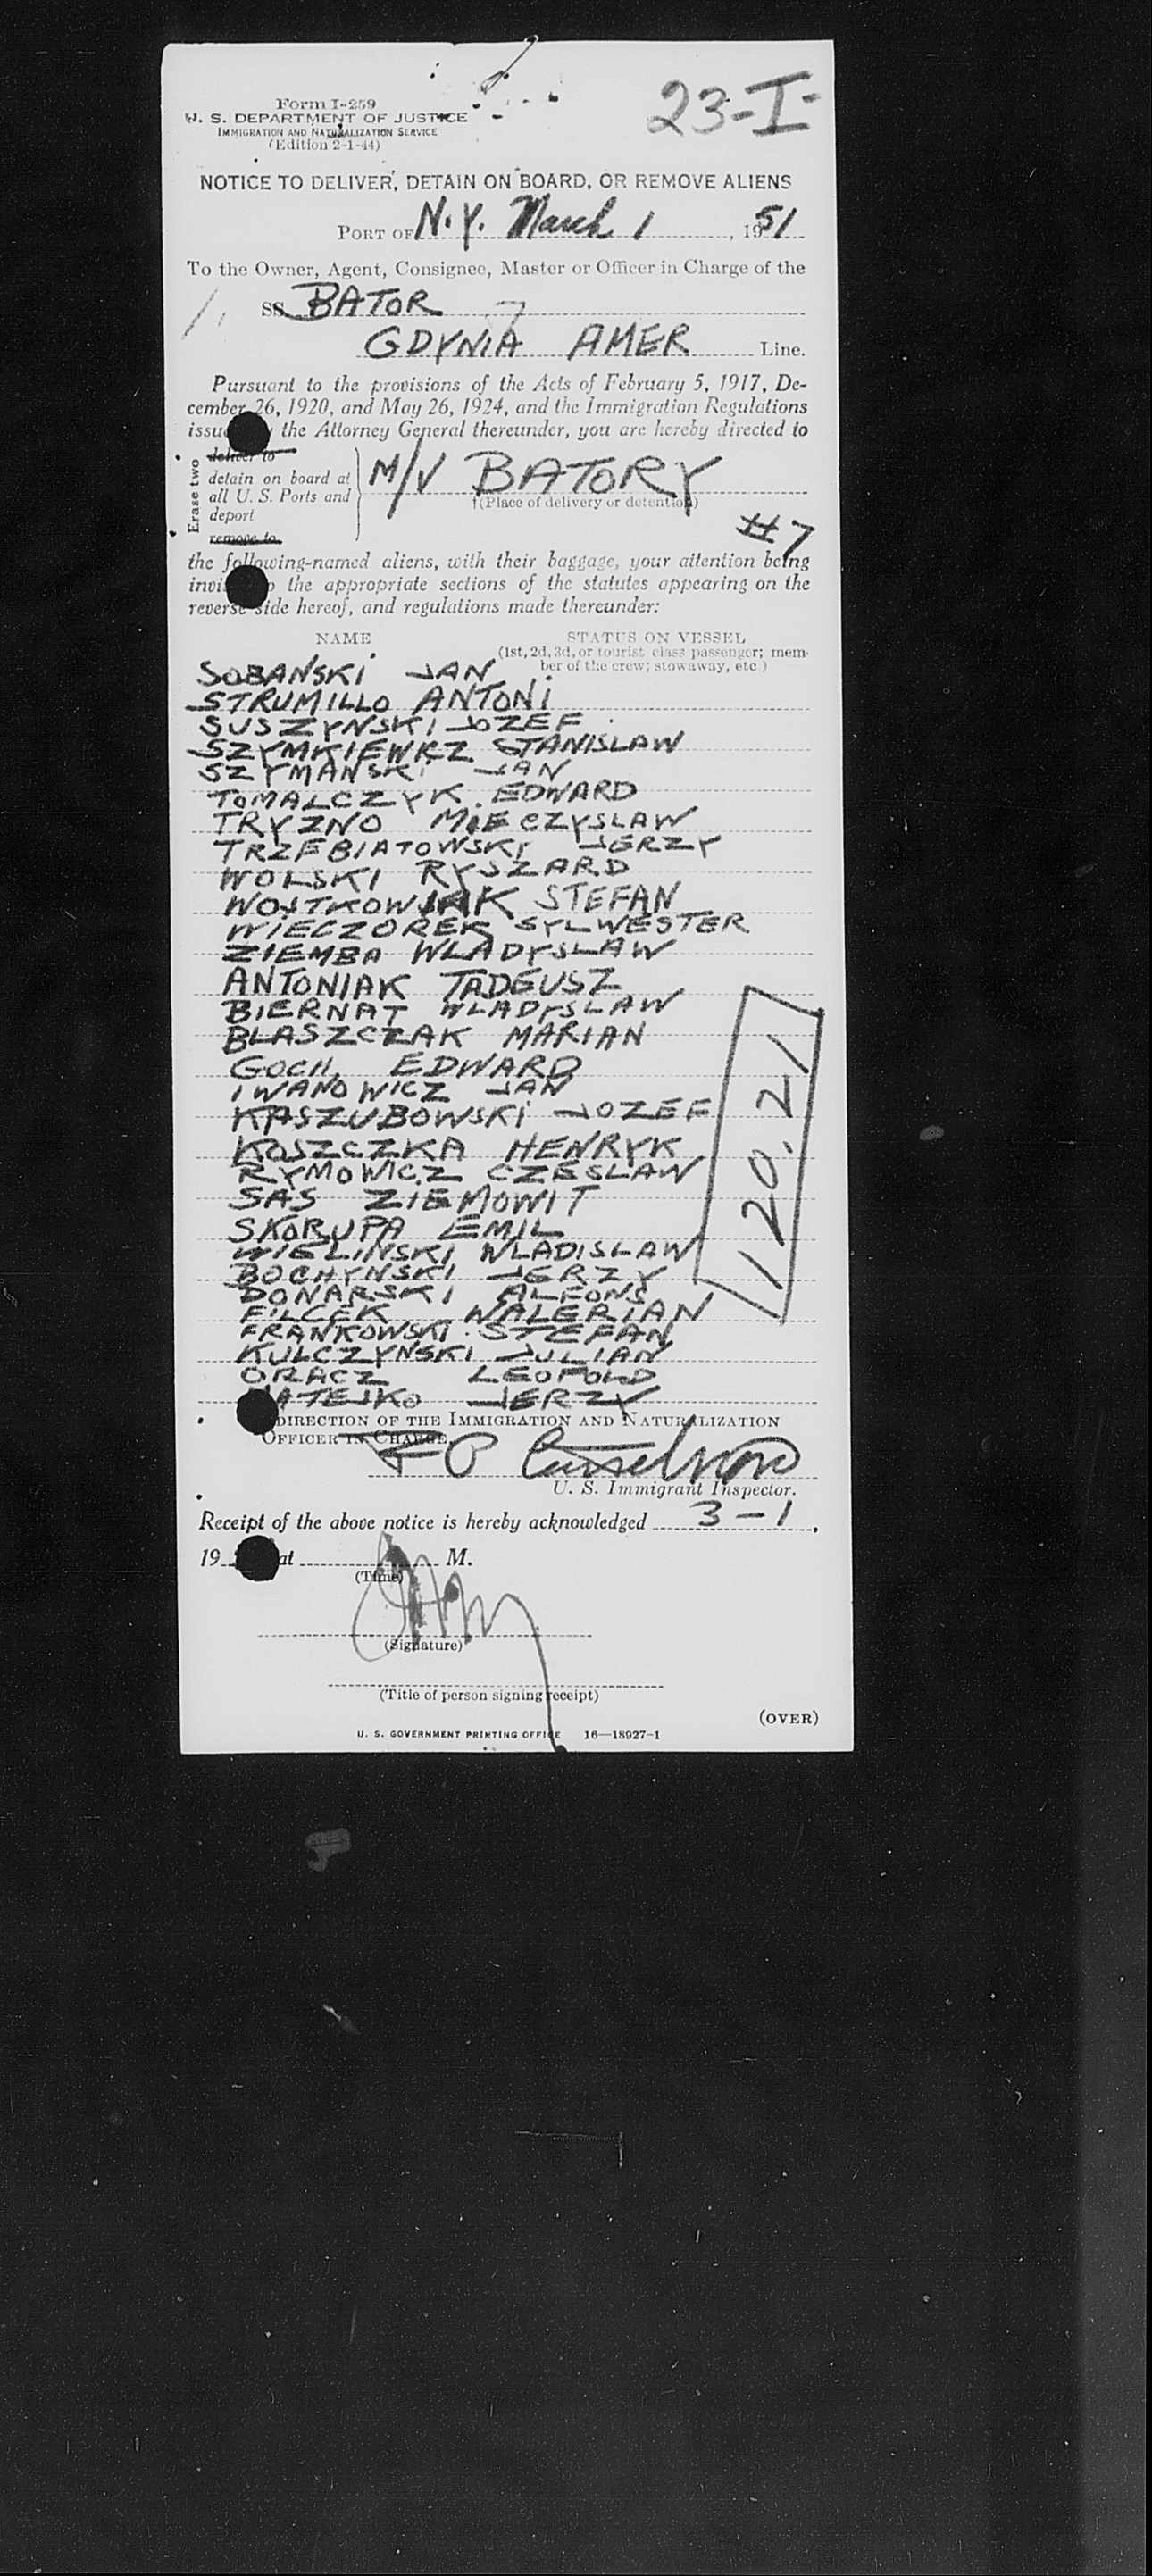 23-I-
Form I-259
U. S. DEPARTMENT OF JUSTICE
IMMIGRATION AND NATURALIZATION SERVICE
(Edition 2-1-44)
NOTICE TO DELIVER, DETAIN ON BOARD, OR REMOVE ALIENS
PORT OF N.Y. March 1, 1951
To the Owner, Agent, Consignee, Master or Officer in Charge of the
SS BATOR
GDYNIA AMER Line.
Pursuant to the provisions of the Acts of February 5, 1917, De-
cember 26, 1920, and May 26, 1924, and the Immigration Regulations
issu the Attorney General thereunder, you are hereby directed to
Erase two
deliver to
detain on board at
all U. S. Ports and
deport
remove to
M/V BATORY
†(Place of delivery or detention)
#7
the following-named aliens, with their baggage, your attention being
invi the appropriate sections of the statutes appearing on the
reverse side hereof, and regulations made thereunder:
NAME STATUS ON VESSEL
(1st, 2d, 3d, or tourist class passenger; mem-
ber of the crew; stowaway, etc.)
SOBANSKI JAN
STRUMILLO ANTONI
SUSZYNSKI JOZEF
SZYMKIEWRZ STANISLAW
SZYMANSKI JAN
TOMALCZYK EDWARD
TRYZNO MIECZYSLAW
TRZEBIATOWSKI JERZY
WOLSKI RYSZARD
WOJTKOWIAK STEFAN
WIECZOREK SYLWESTER
ZIEMBA WLADYSLAW
ANTONIAK TADEUSZ
BIERNAT WLADYSLAW
BLASZCZAK MARIAN
GOCH EDWARD
IWANOWICZ JAN
KASZUBOWSKI JOZEF
KOSZCZKA HENRYK
RYMOWICZ CZESLAW
SAS ZIEMOWIT
SKORUPA EMIL
WIELINSKI WLADISLAW
BOCHYNSKI JERZY
DONARSKI ALFONS
FILCEK WALERIAN
FRANKOWSKI STEFAN
KULCZYNSKI JULIAN
ORACZ LEOPOLD
MATEJKO JERZY
120.21
DIRECTION OF THE IMMIGRATION AND NATURALIZATION
OFFICER IN CHARGE.
U. S. Immigrant Inspector.
Receipt of the above notice is hereby acknowledged 3-1,
19 at M.
(Time)
(Signature)
(Title of person signing receipt)
(OVER)
U. S. GOVERNMENT PRINTING OFFICE 16—18927-1